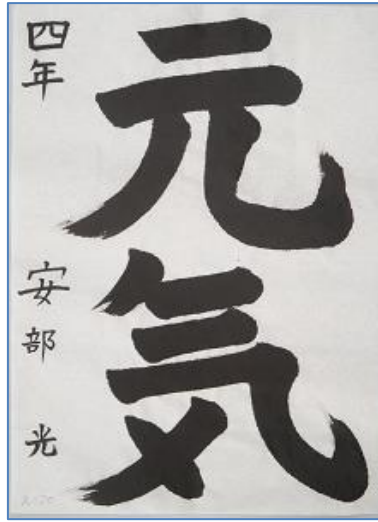 元気
四年 安部 光